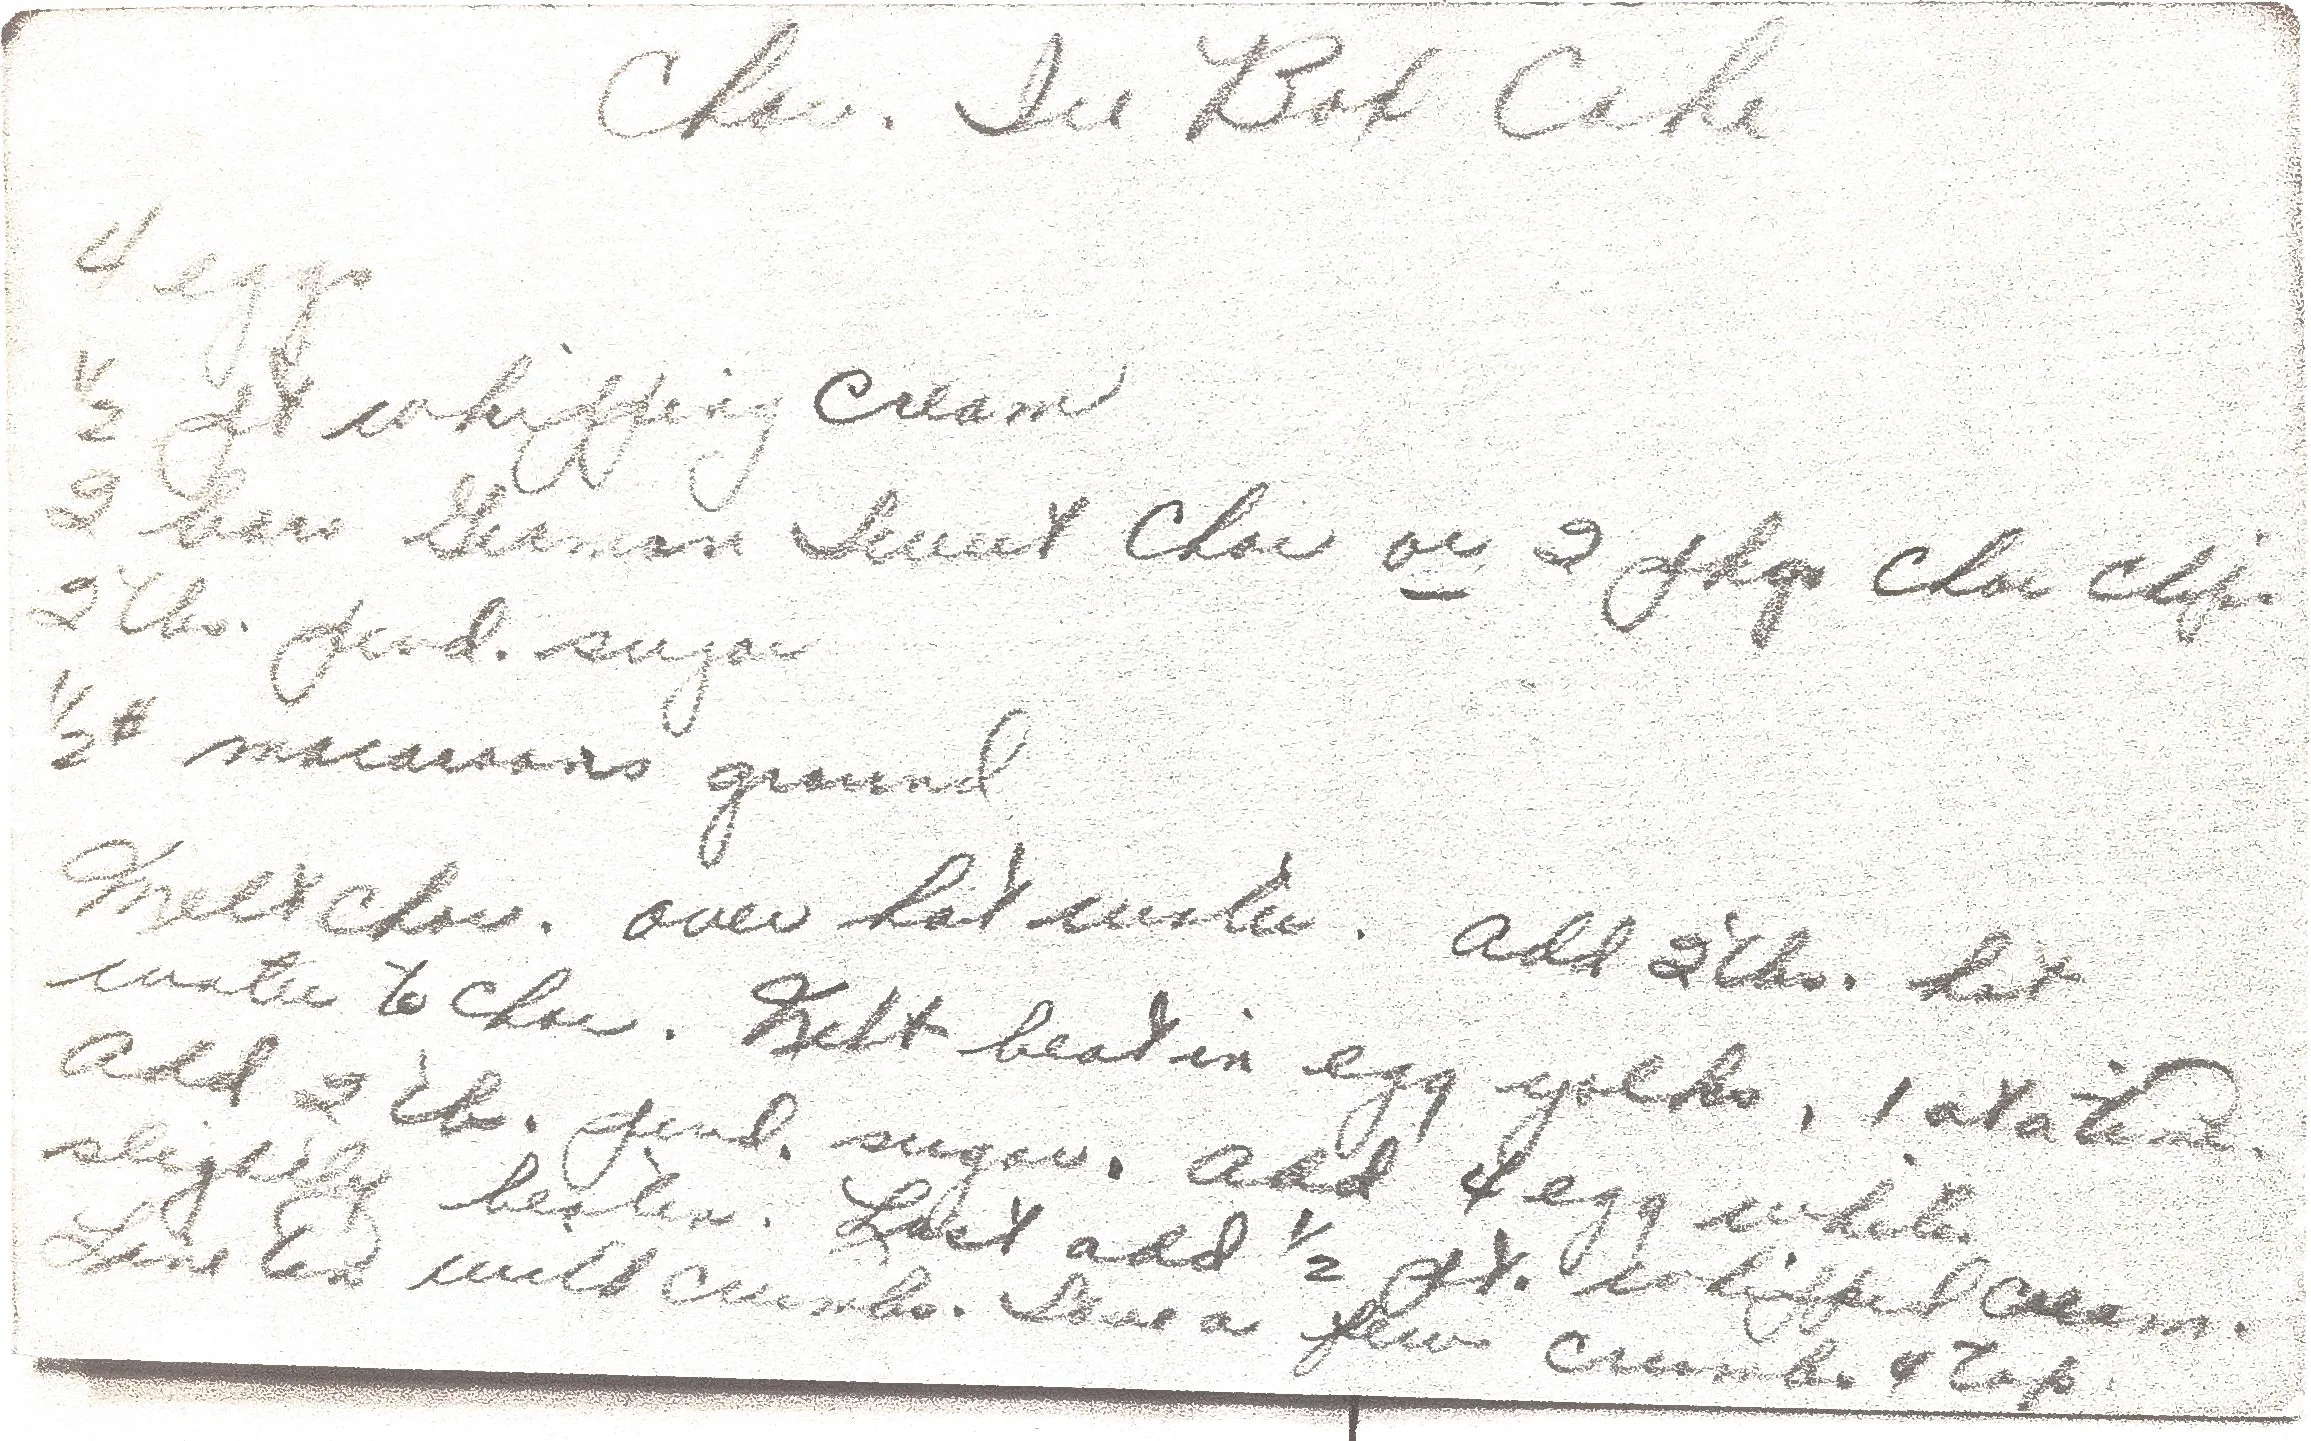 Choc. Ice Box Cake
4 eggs
1/2 pt whipping Cream
2 bars German Sweet Choc or 2 pkgs Choc chip.
2 Tbs. powd. sugar
1/2 # macaroons ground
Melt Choc. over hot water. Add 2 Tbs. hot
water to Choc. Melt beat in egg yolks, 1 at a time.
Add 2 Tb. powd. sugar. Add 4 egg whites
slightly beaten. Last add 1/2 pt. whipped Cream.
Line Pan with Crumbs. Save a few crumbs. 4 top.